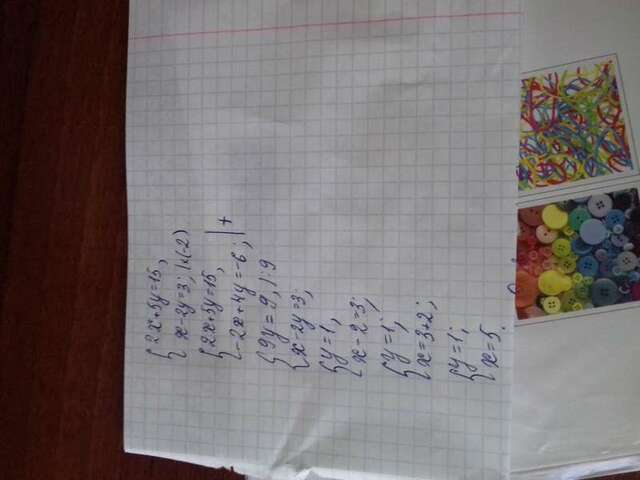 2x+5y=15,
x-2y=3; |x(-2)
2x+5y=15,
-2x+4y=-6; | +
9y=9, |:9
x-2y=3;
y=1,
x-2=3;
y=1;
x=3+2;
y=1;
x=5.